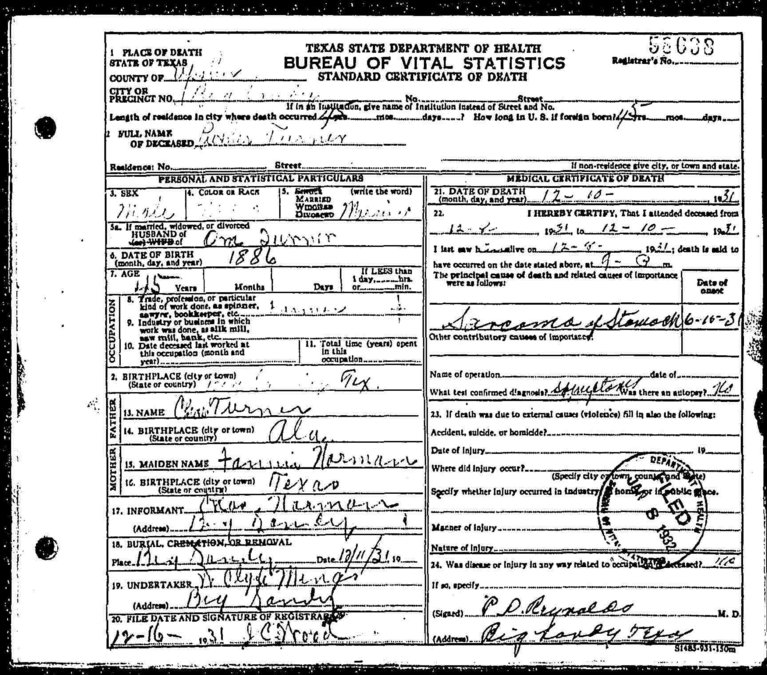 TEXAS STATE DEPARTMENT OF HEALTH
BUREAU OF VITAL STATISTICS
STANDARD CERTIFICATE OF DEATH
Registrar's No.
1 PLACE OF DEATH
STATE OF TEXAS
COUNTY OF
CITY OR
PRECINCT NO. No. Street
If in an Institution, give name of Institution instead of Street and No.
Length of residence in city where death occurred yrs. mos. days. How long in U. S. if foreign born? 45 yrs. mos. days
2 FULL NAME
OF DECEASED Turner
Residence: No. Street If non-residence give city, or town and state.
PERSONAL AND STATISTICAL PARTICULARS
3. SEX
Male
4. COLOR OR RACE
5. SINGLE
MARRIED
WIDOWED
DIVORCED
(write the word)
5a. If married, widowed, or divorced
HUSBAND of
(or) WIFE of
Turner
6. DATE OF BIRTH
(month, day, and year) 1886
7. AGE
45 Years Months Days
If LESS than
1 day, hrs.
or min.
OCCUPATION
8. Trade, profession, or particular
kind of work done, as spinner,
sawyer, bookkeeper, etc.
9. Industry or business in which
work was done, as silk mill,
saw mill, bank, etc.
10. Date deceased last worked at
this occupation (month and
year)
11. Total time (years) spent
in this
occupation
2. BIRTHPLACE (city or town)
(State or country) Tex.
FATHER
13. NAME Turner
14. BIRTHPLACE (city or town)
(State or country) Ala.
MOTHER
15. MAIDEN NAME Fannie Norman
16. BIRTHPLACE (city or town)
(State or country) Texas
17. INFORMANT Norman
(Address) Big Sandy
18. BURIAL, CREMATION, OR REMOVAL
Place Big Sandy Date 12/11/31, 19
19. UNDERTAKER Clyde
(Address) Big Sandy
20. FILE DATE AND SIGNATURE OF REGISTRAR
12-16- 1931 J C Wood
MEDICAL CERTIFICATE OF DEATH
21. DATE OF DEATH
(month, day, and year) 12-10- 1931
22. I HEREBY CERTIFY, That I attended deceased from
12-8- 1931 to 12-10- 1931
I last saw him alive on 12-8- 1931; death is said to
have occurred on the date stated above, at 9- m.
The principal cause of death and related causes of importance
were as follows:
Date of
onset
Sarcoma of Stomach 6-10-31
Other contributory causes of importance:
Name of operation date of
What test confirmed diagnosis? Symptoms Was there an autopsy? No
23. If death was due to external causes (violence) fill in also the following:
Accident, suicide, or homicide?
Date of injury 19
Where did injury occur?
(Specify city or town, county and state)
Specify whether injury occurred in industry, home, or in public place.
Manner of injury
Nature of injury
24. Was disease or injury in any way related to occupation of deceased? No
If so, specify
(Signed) P. D. Reynolds M. D.
(Address) Big Sandy Texas
FILED
JAN 8 1932
S1485-931-150m